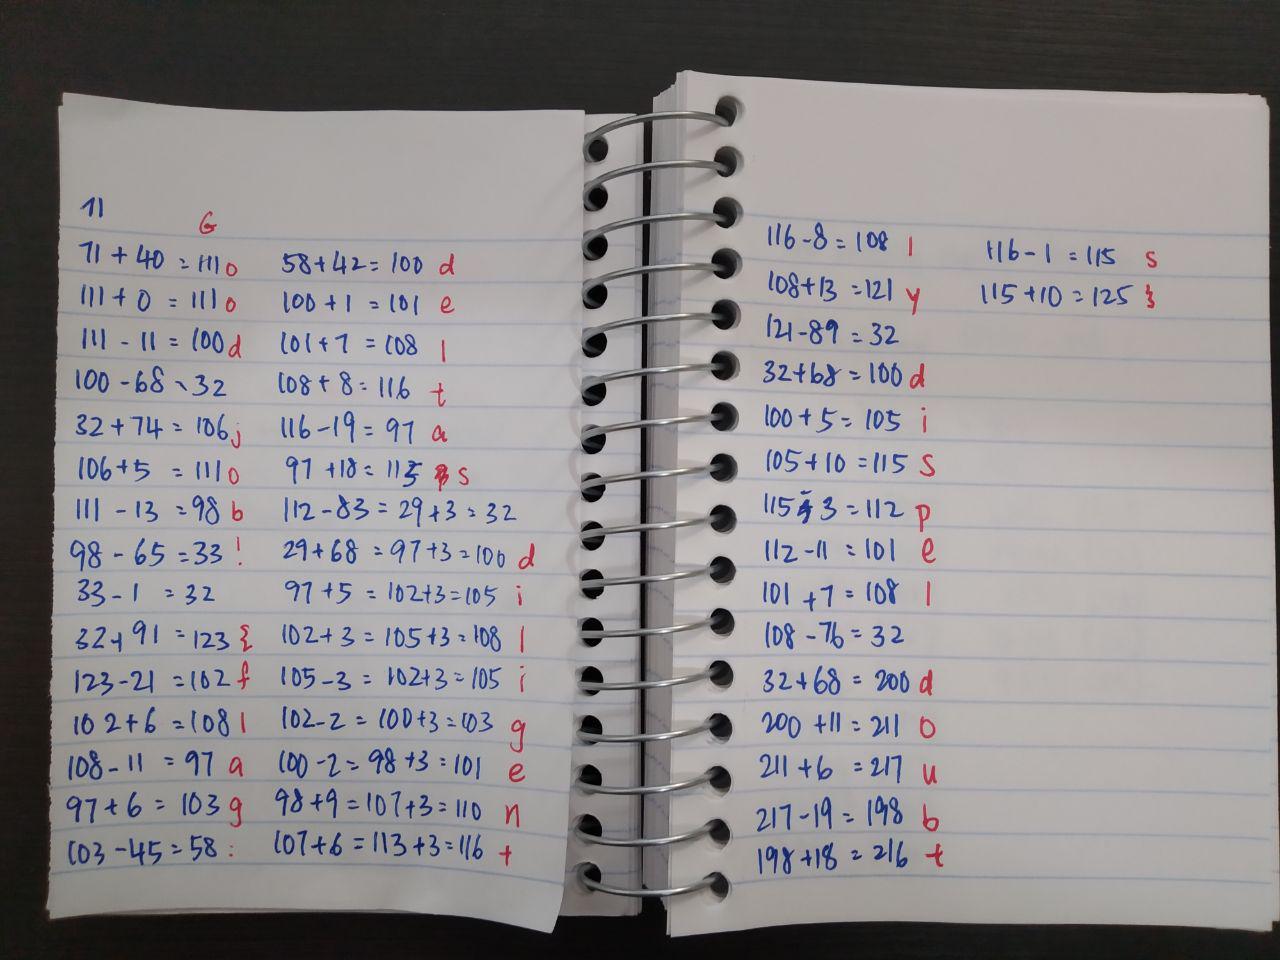 71
G
71 + 40 = 111 o
111 + 0 = 111 o
111 - 11 = 100 d
100 - 68 = 32
32 + 74 = 106 j
106 + 5 = 111 o
111 - 13 = 98 b
98 - 65 = 33 !
33 - 1 = 32
32 + 91 = 123 {
123 - 21 = 102 f
102 + 6 = 108 l
108 - 11 = 97 a
97 + 6 = 103 g
103 - 45 = 58 :
58 + 42 = 100 d
100 + 1 = 101 e
101 + 7 = 108 l
108 + 8 = 116 t
116 - 19 = 97 a
97 + 18 = 115 s
112 - 83 = 29 + 3 = 32
29 + 68 = 97 + 3 = 100 d
97 + 5 = 102 + 3 = 105 i
102 + 3 = 105 + 3 = 108 l
105 - 3 = 102 + 3 = 105 i
102 - 2 = 100 + 3 = 103 g
100 - 2 = 98 + 3 = 101 e
98 + 9 = 107 + 3 = 110 n
107 + 6 = 113 + 3 = 116 t
116 - 8 = 108 l
108 + 13 = 121 y
121 - 89 = 32
32 + 68 = 100 d
100 + 5 = 105 i
105 + 10 = 115 s
115 - 3 = 112 p
112 - 11 = 101 e
101 + 7 = 108 l
108 - 76 = 32
32 + 68 = 200 d
200 + 11 = 211 o
211 + 6 = 217 u
217 - 19 = 198 b
198 + 18 = 216 t
116 - 1 = 115 s
115 + 10 = 125 }